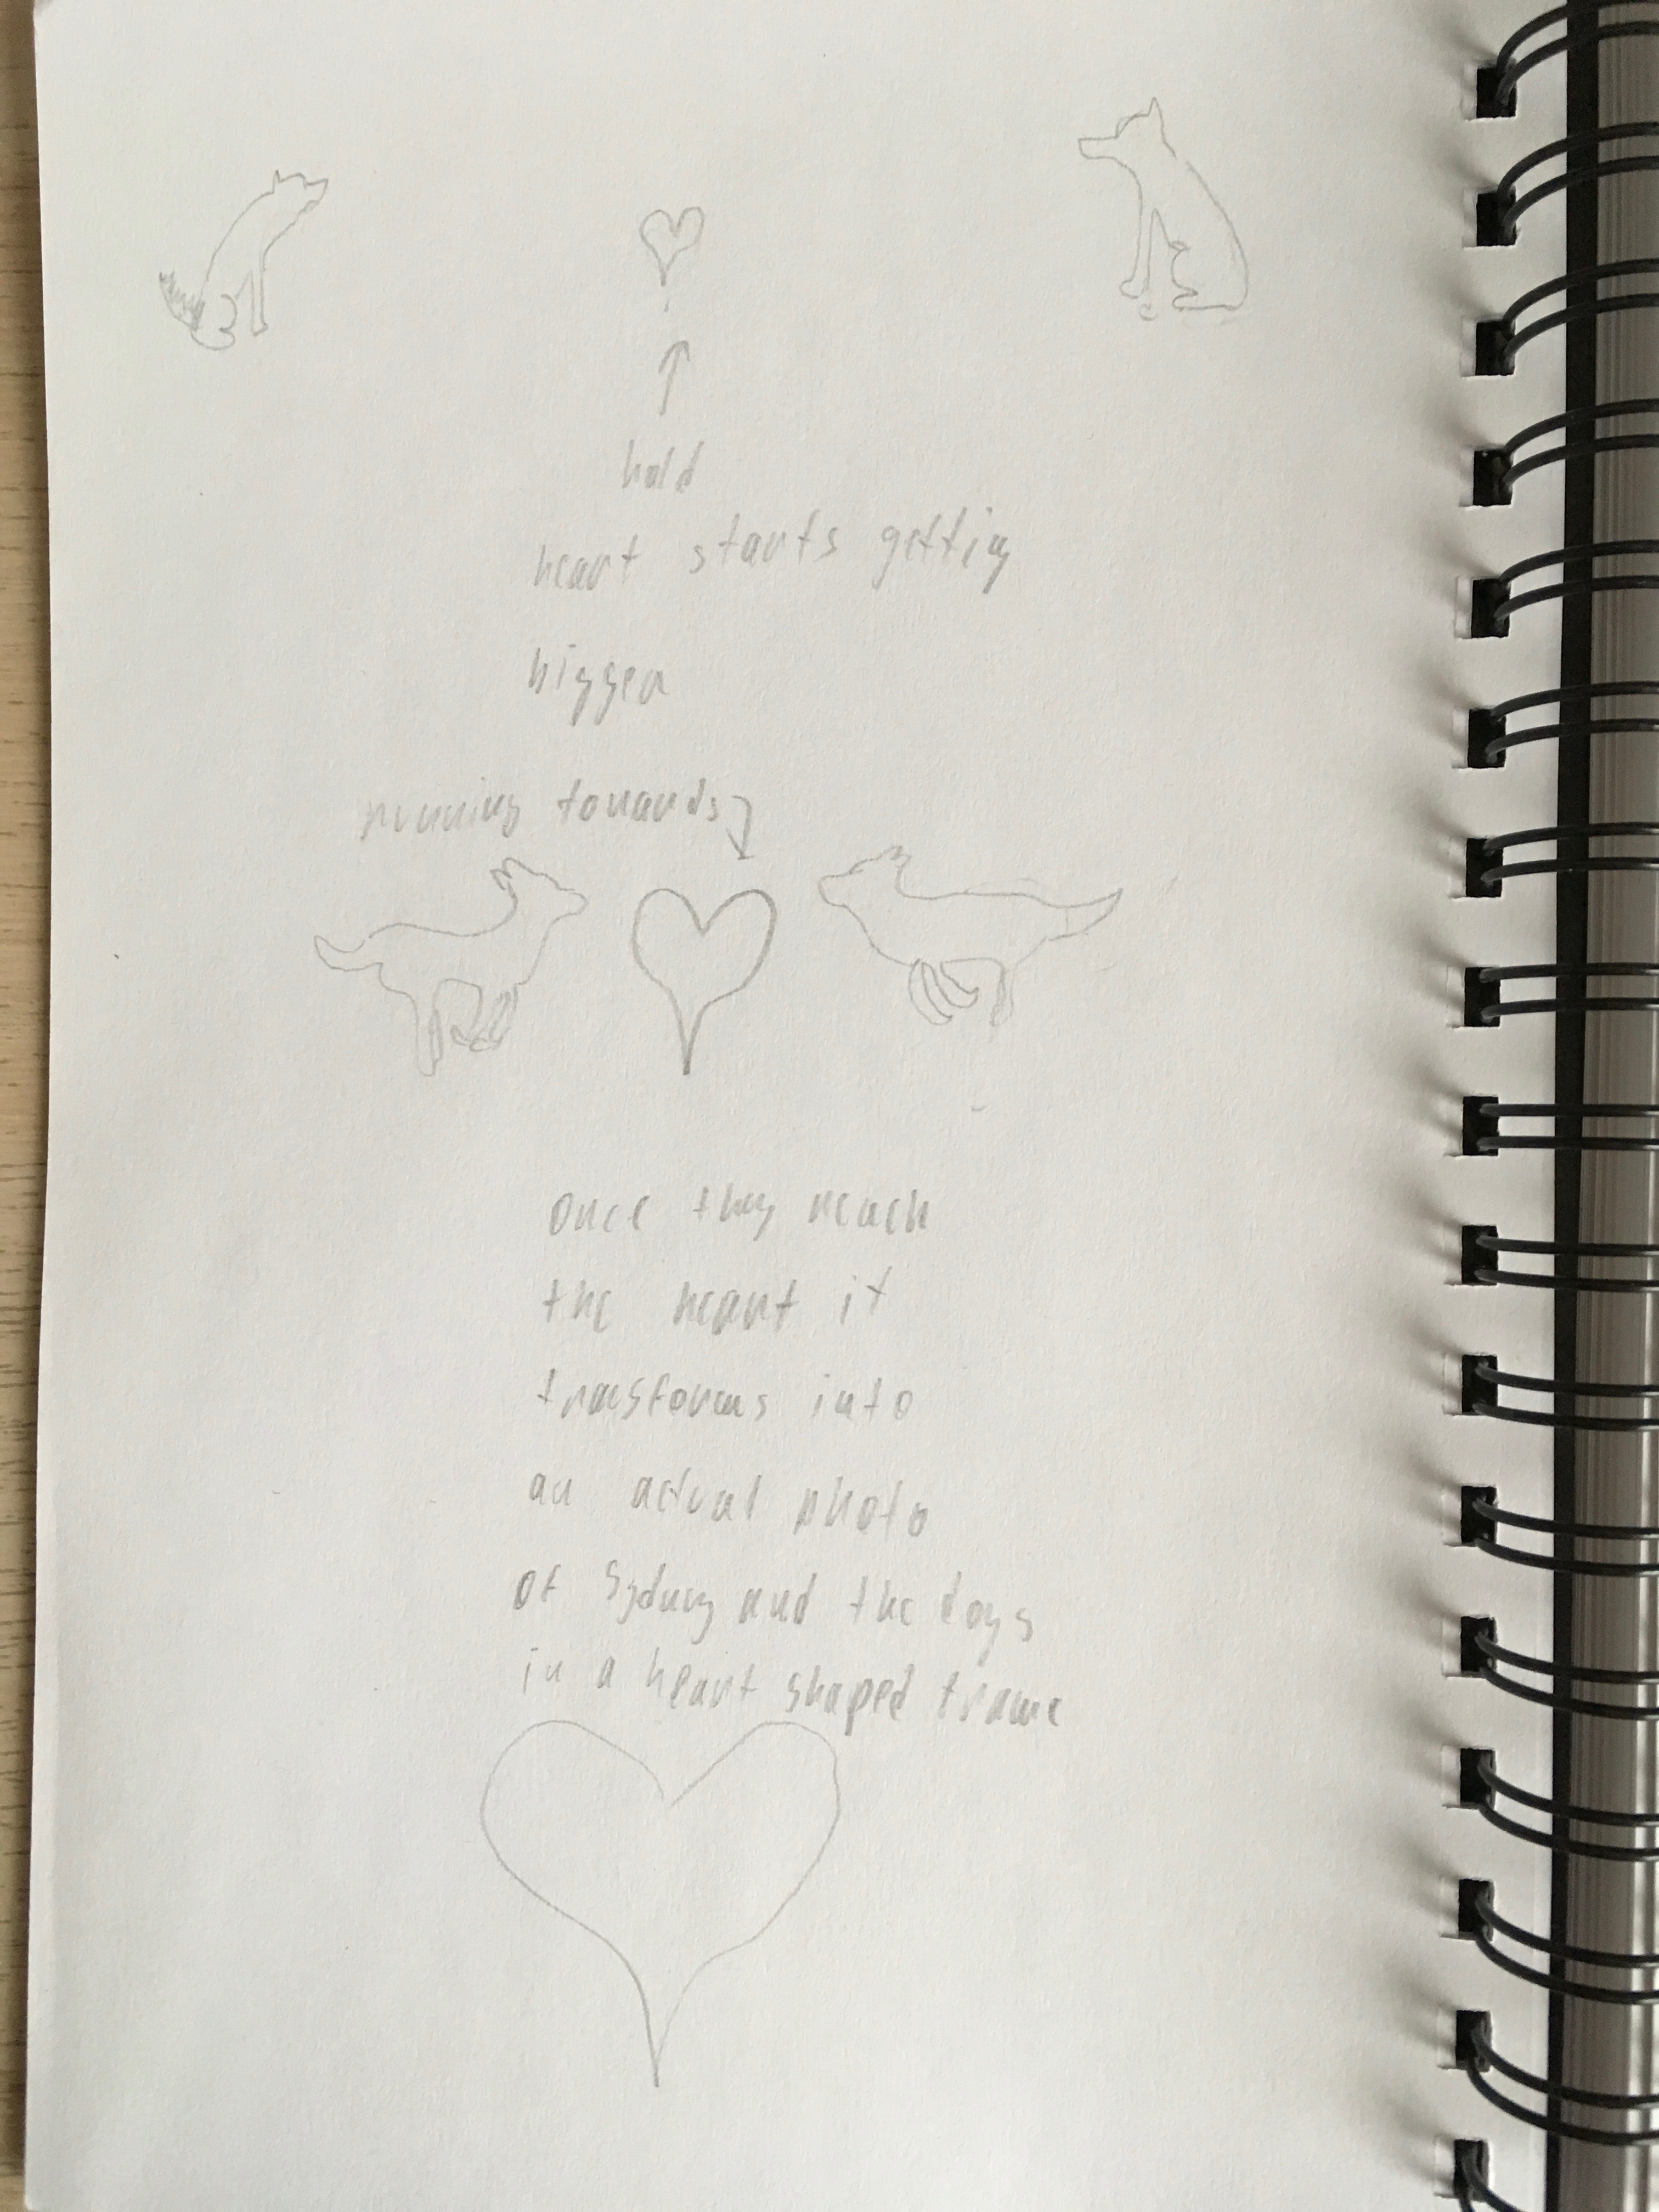 hold
heart starts getting
bigger
running towards
once they reach
the heart it
transforms into
an actual photo
of Sydney and the dogs
in a heart shaped frame